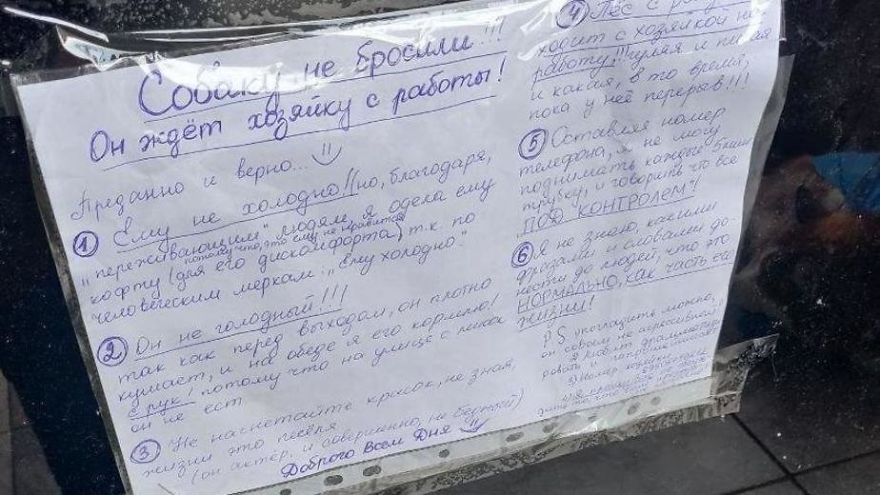 Собаку не бросили!!!
Он ждёт хозяйку с работы!
Преданно и верно...
① Ему не холодно!! но, благодаря,
"переживающим" людям, я одела ему
потому что, это ему не нравится
кофту (для его дискомфорта) т.к. по
человеческим меркам: "Ему холодно."
② Он не голодный!!!
так как перед выходом, он плотно
кушает, и на обеде я его кормлю!
с рук! потому что на улице с миски
он не ест
③ Не нагнетайте красок, не зная,
жизни это пёселя
(он актёр. и совершенно, не бедный)
Доброго Всем Дня
④ Пёс с
ходит с хозяйкой на
работу!!! гуляя и писая
и какая, в то время,
пока у неё перерыв!!!
⑤ Оставляя номер
телефона, я не могу
поднимать каждой 5 мин
трубку, и говорить что все
"ПОД КОНТРОЛЕМ"!
⑥ Я не знаю, какими
фразами и словами до-
нести до людей, что это
НОРМАЛЬНО, как часть его
жизни!
P.S. погладить можно,
он совсем не агрессивный